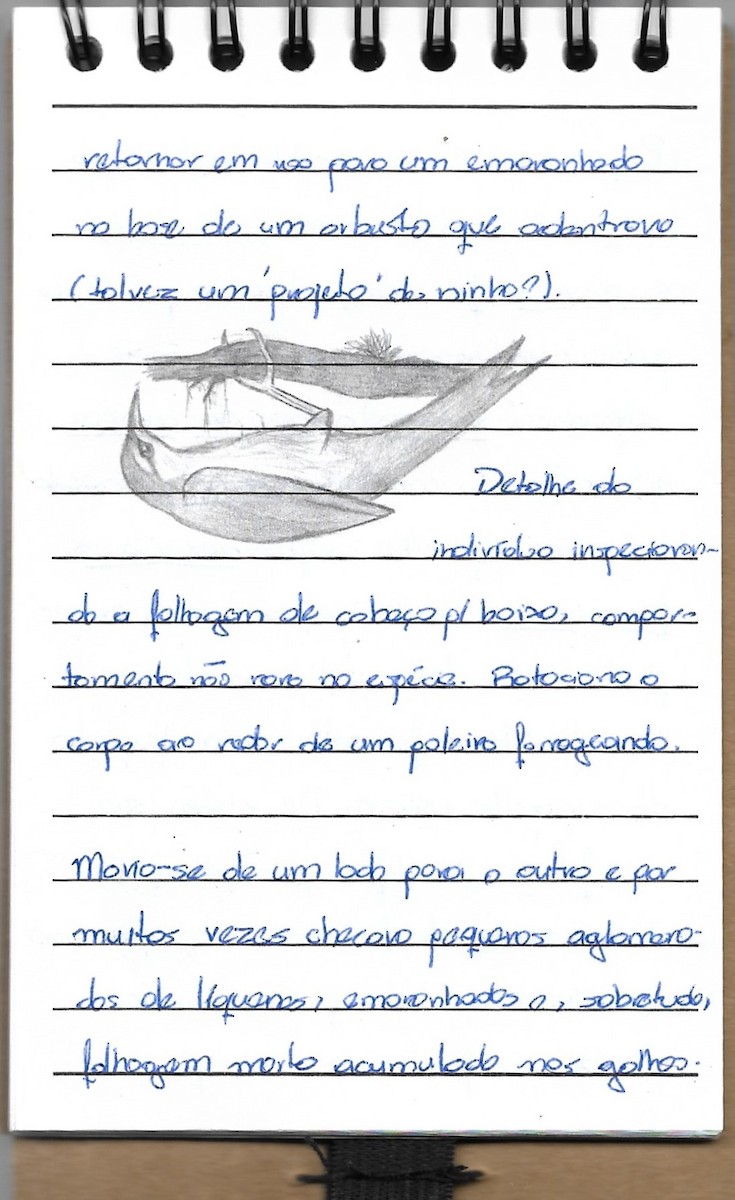 retornar em voo para um emaranhado
na base de um arbusto que adentrava
(talvez um 'projeto' de ninho?).
Detalhe do
indivíduo inspecionan-
do a folhagem de cabeça p/ baixo, compor-
tamento não raro na espécie. Rotaciona o
corpo ao redor de um poleiro forrageando.
Movia-se de um lado para o outro e por
muitas vezes checava pequenos aglomera-
dos de líquenes, emaranhados e, sobretudo,
folhagem morta acumulada nos galhos.